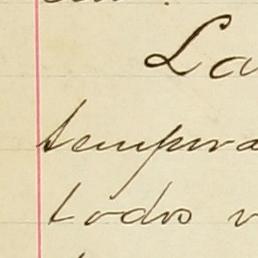 La
tempera
todos v